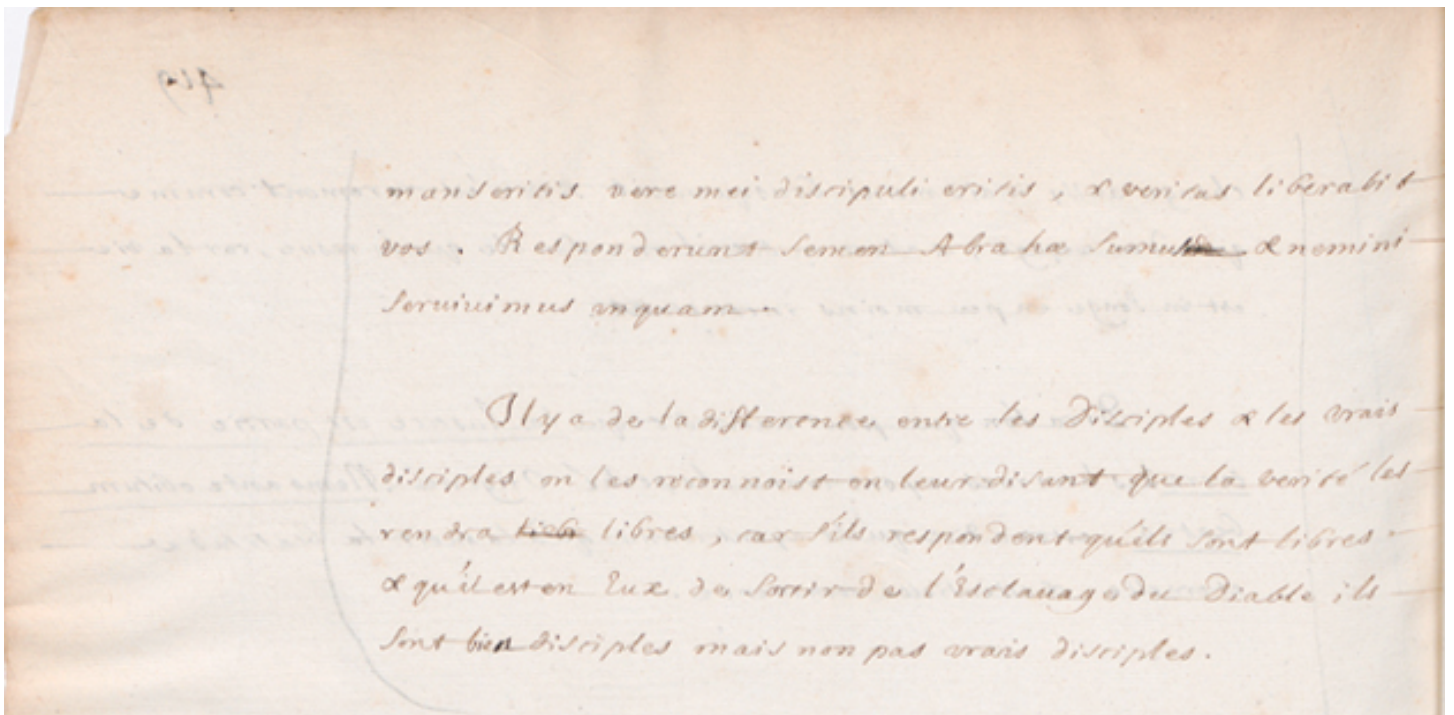 manseritis vere mei discipuli eritis, & veritas liberabit
vos. Responderunt Semen Abrahæ Sumus & nemini
Servivimus unquam.
Il y a de la difference entre les Disciples & les vrais
disciples on les reconnoist en leur disant que la verité les
rendra libres, car s'ils respondent qu'ils sont libres
& qu'il est en Eux de Sortir de l'Esclavage du Diable ils
Sont bien disciples mais non pas vrais disciples.